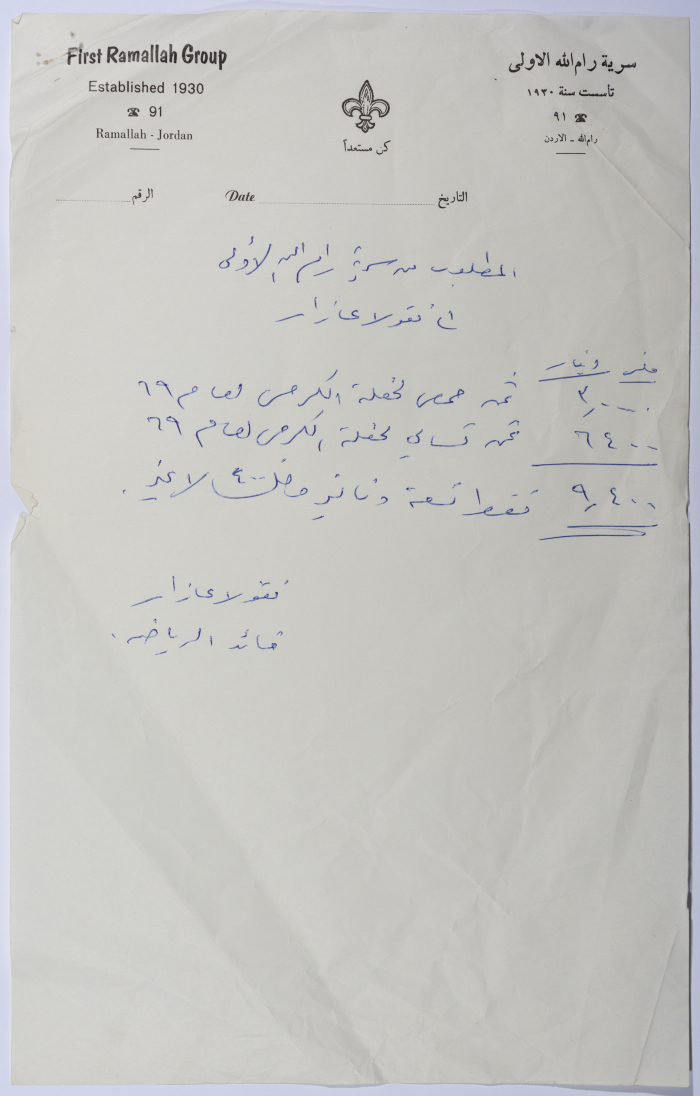 First Ramallah Group
Established 1930
☎ 91
Ramallah - Jordan
سرية رام الله الاولى
تأسست سنة ١٩٣٠
☎ ٩١
رام الله ـ الاردن
كن مستعداً
التاريخ Date
الرقم
المطلوب من سرية رام الله الأولى
الى نقولا عازار
فلس دينار
٣,٠٠٠ ثمن حمص لحفلة الكرمس لعام ٦٩
٦٤٠٠ ثمن تسالي لحفلة الكرمس لعام ٦٩
٩,٤٠٠ فقط تسعة دنانير و ٤٠٠ فلس لا غير.
نقولا عازار
قائد الرياضة.